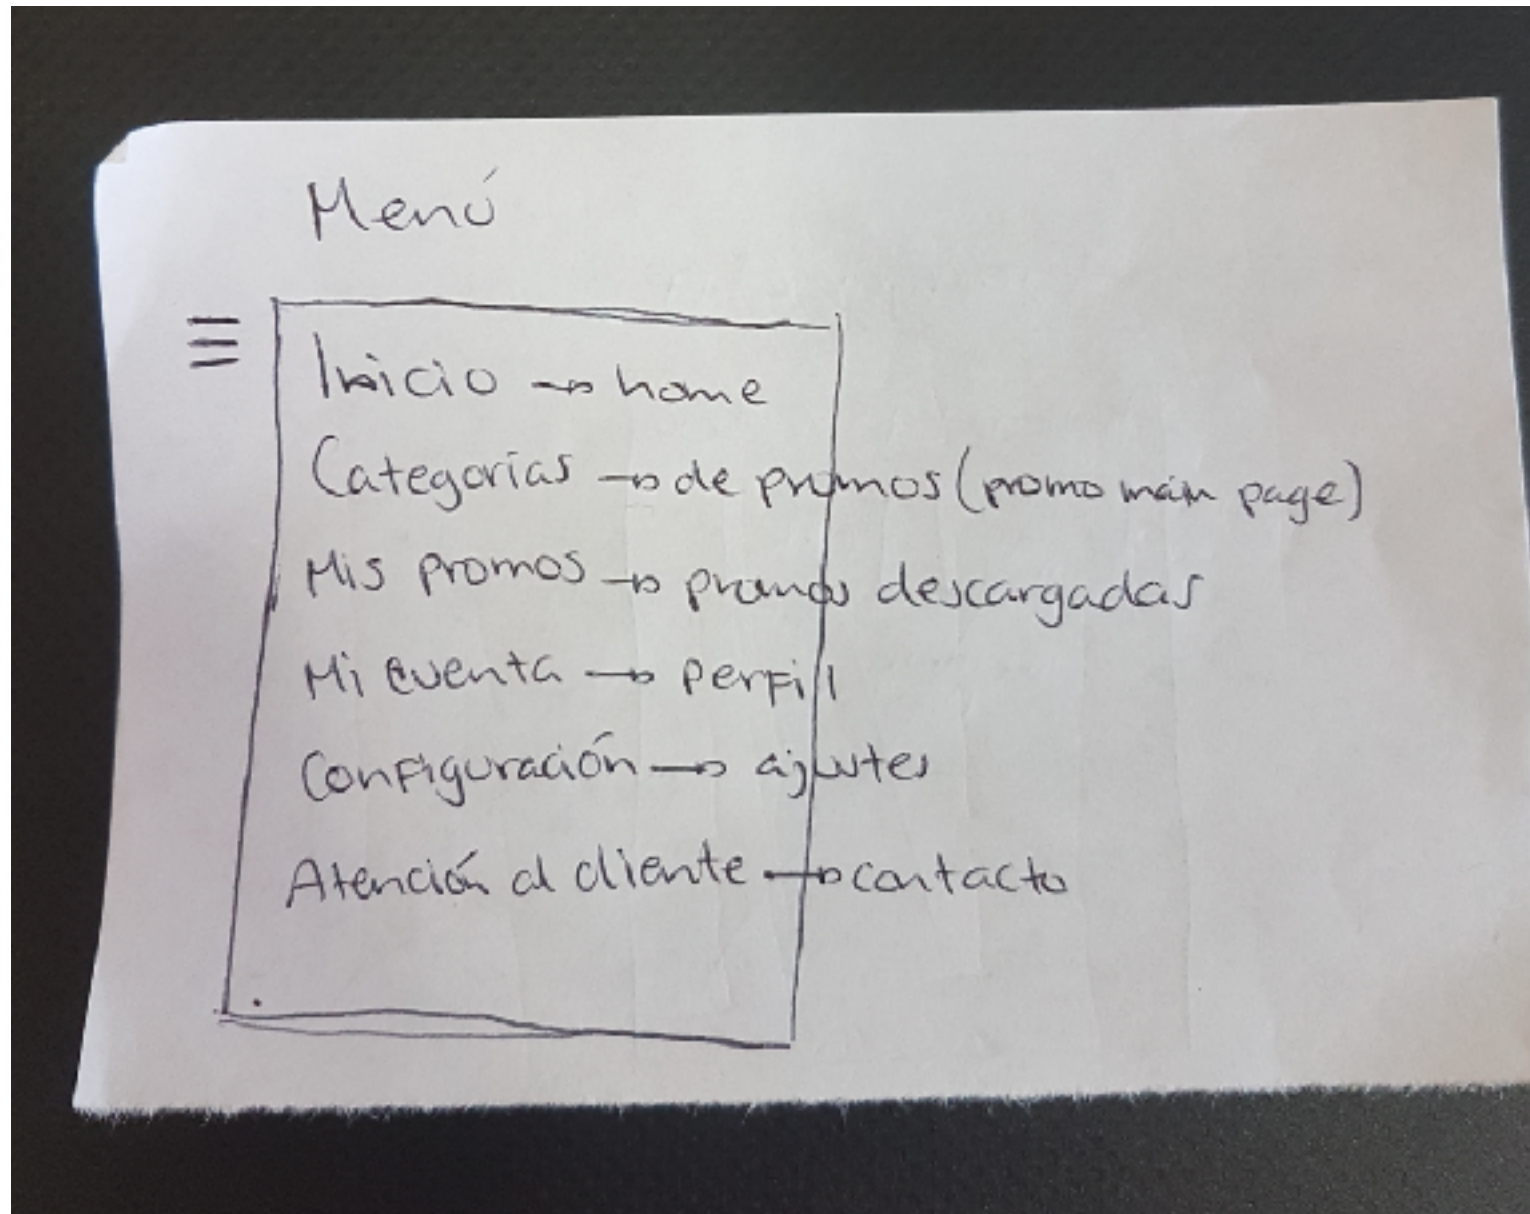 Menú
Inicio → home
Categorías → de promos (promo main page)
Mis promos → promos descargadas
Mi cuenta → perfil
Configuración → ajustes
Atención al cliente → contacto